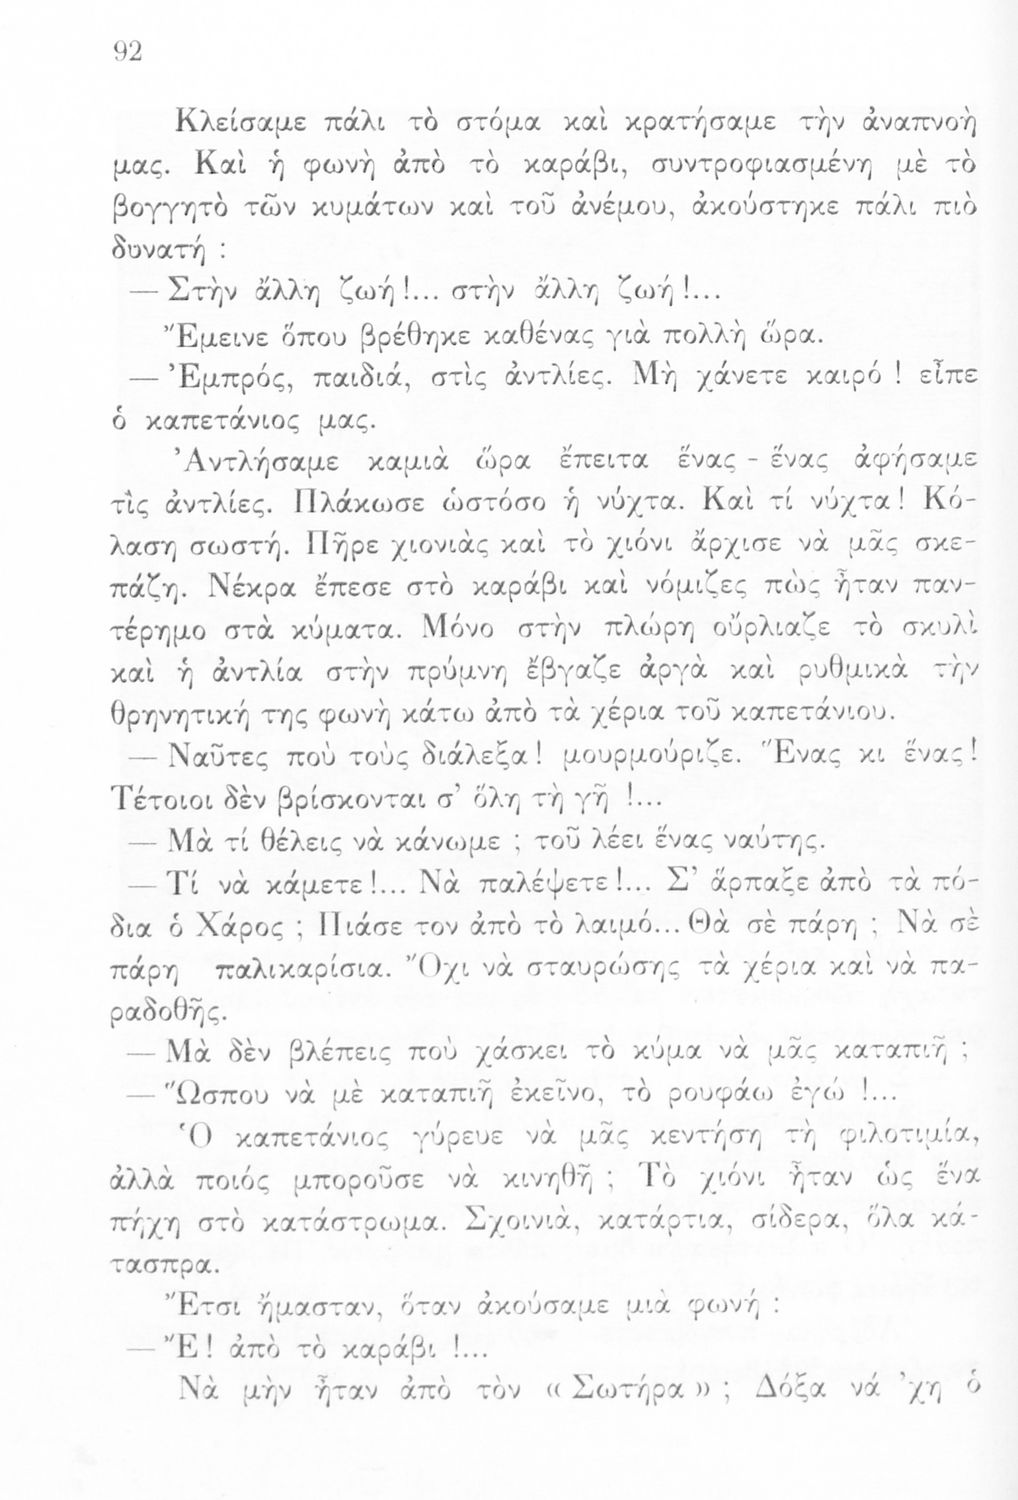 92
Κλείσαμε πάλι τὸ στόμα καὶ κρατήσαμε τὴν ἀναπνοὴ
μας. Καὶ ἡ φωνὴ ἀπὸ τὸ καράβι, συντροφιασμένη μὲ τὸ
βογγητὸ τῶν κυμάτων καὶ τοῦ ἀνέμου, ἀκούστηκε πάλι πιὸ
δυνατή :
— Στὴν ἄλλη ζωή !... στὴν ἄλλη ζωή !...
Ἔμεινε ὅπου βρέθηκε καθένας γιὰ πολλὴ ὥρα.
— Ἐμπρός, παιδιά, στὶς ἀντλίες. Μὴ χάνετε καιρό ! εἶπε
ὁ καπετάνιος μας.
Ἀντλήσαμε καμιὰ ὥρα ἔπειτα ἕνας - ἕνας ἀφήσαμε
τὶς ἀντλίες. Πλάκωσε ὡστόσο ἡ νύχτα. Καὶ τί νύχτα! Κό-
λαση σωστή. Πῆρε χιονιὰς καὶ τὸ χιόνι ἄρχισε νὰ μᾶς σκε-
πάζη. Νέκρα ἔπεσε στὸ καράβι καὶ νόμιζες πὼς ἦταν παν-
τέρημο στὰ κύματα. Μόνο στὴν πλώρη οὔρλιαζε τὸ σκυλὶ
καὶ ἡ ἀντλία στὴν πρύμνη ἔβγαζε ἀργὰ καὶ ρυθμικὰ τὴν
θρηνητική της φωνὴ κάτω ἀπὸ τὰ χέρια τοῦ καπετάνιου.
— Ναῦτες ποὺ τοὺς διάλεξα! μουρμούριζε. Ἕνας κι ἕνας!
Τέτοιοι δὲν βρίσκονται σ’ ὅλη τὴ γῆ !...
— Μὰ τί θέλεις νὰ κάνωμε ; τοῦ λέει ἕνας ναύτης.
— Τί νὰ κάμετε!... Νὰ παλέψετε!... Σ’ ἅρπαξε ἀπὸ τὰ πό-
δια ὁ Χάρος ; Πιάσε τον ἀπὸ τὸ λαιμό... Θὰ σὲ πάρη ; Νὰ σὲ
πάρη παλικαρίσια. Ὄχι νὰ σταυρώσης τὰ χέρια καὶ νὰ πα-
ραδοθῆς.
— Μὰ δὲν βλέπεις ποὺ χάσκει τὸ κύμα νὰ μᾶς καταπιῆ ;
— Ὥσπου νὰ μὲ καταπιῆ ἐκεῖνο, τὸ ρουφάω ἐγώ !...
Ὁ καπετάνιος γύρευε νὰ μᾶς κεντήση τὴ φιλοτιμία,
ἀλλὰ ποιός μποροῦσε νὰ κινηθῆ ; Τὸ χιόνι ἦταν ὡς ἕνα
πήχη στὸ κατάστρωμα. Σχοινιά, κατάρτια, σίδερα, ὅλα κά-
τασπρα.
Ἔτσι ἤμασταν, ὅταν ἀκούσαμε μιὰ φωνή :
— Ἔ! ἀπὸ τὸ καράβι !...
Νὰ μὴν ἦταν ἀπὸ τὸν « Σωτήρα » ; Δόξα νά ’χη ὁ